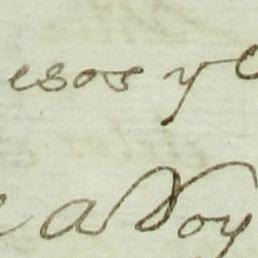 esos y
a Doy